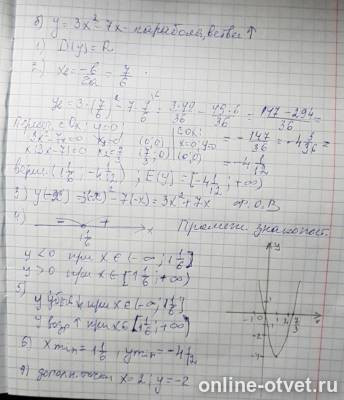 б) y = 3x² - 7x - парабола, ветви ↑
1) D(y) = R
2) x₀ = -b/2a = 7/6
y₀ = 3·(7/6)² - 7·7/6 = 3·49/36 - 49·6/36 = 147-294/36 =
Пересеч. с Ox: y=0; с OX: = -147/36 = -4 3/36 =
x(3x-7)=0 x₂=7/3 (7/3; 0) (0;0) = -4 1/12
верш. (1 1/6; -4 1/12); E(y) = [-4 1/12; +∞)
3) y(-x) = 3(-x)² - 7(-x) = 3x² + 7x Ф.О.В
4) Промеж. знакопост.
1 1/6 x
y < 0 при x ∈ (-∞; 1 1/6]
y > 0 при x ∈ [1 1/6; +∞)
5) y убыв при x ∈ (-∞; 1 1/6]
y возр ↑ при x ∈ [1 1/6; +∞)
6) x min = 1 1/6, y min = -4 1/12
7) дополн. точки x=2; y=-2
y
-1 0 1 2 7/3
-4
online-otvet.ru